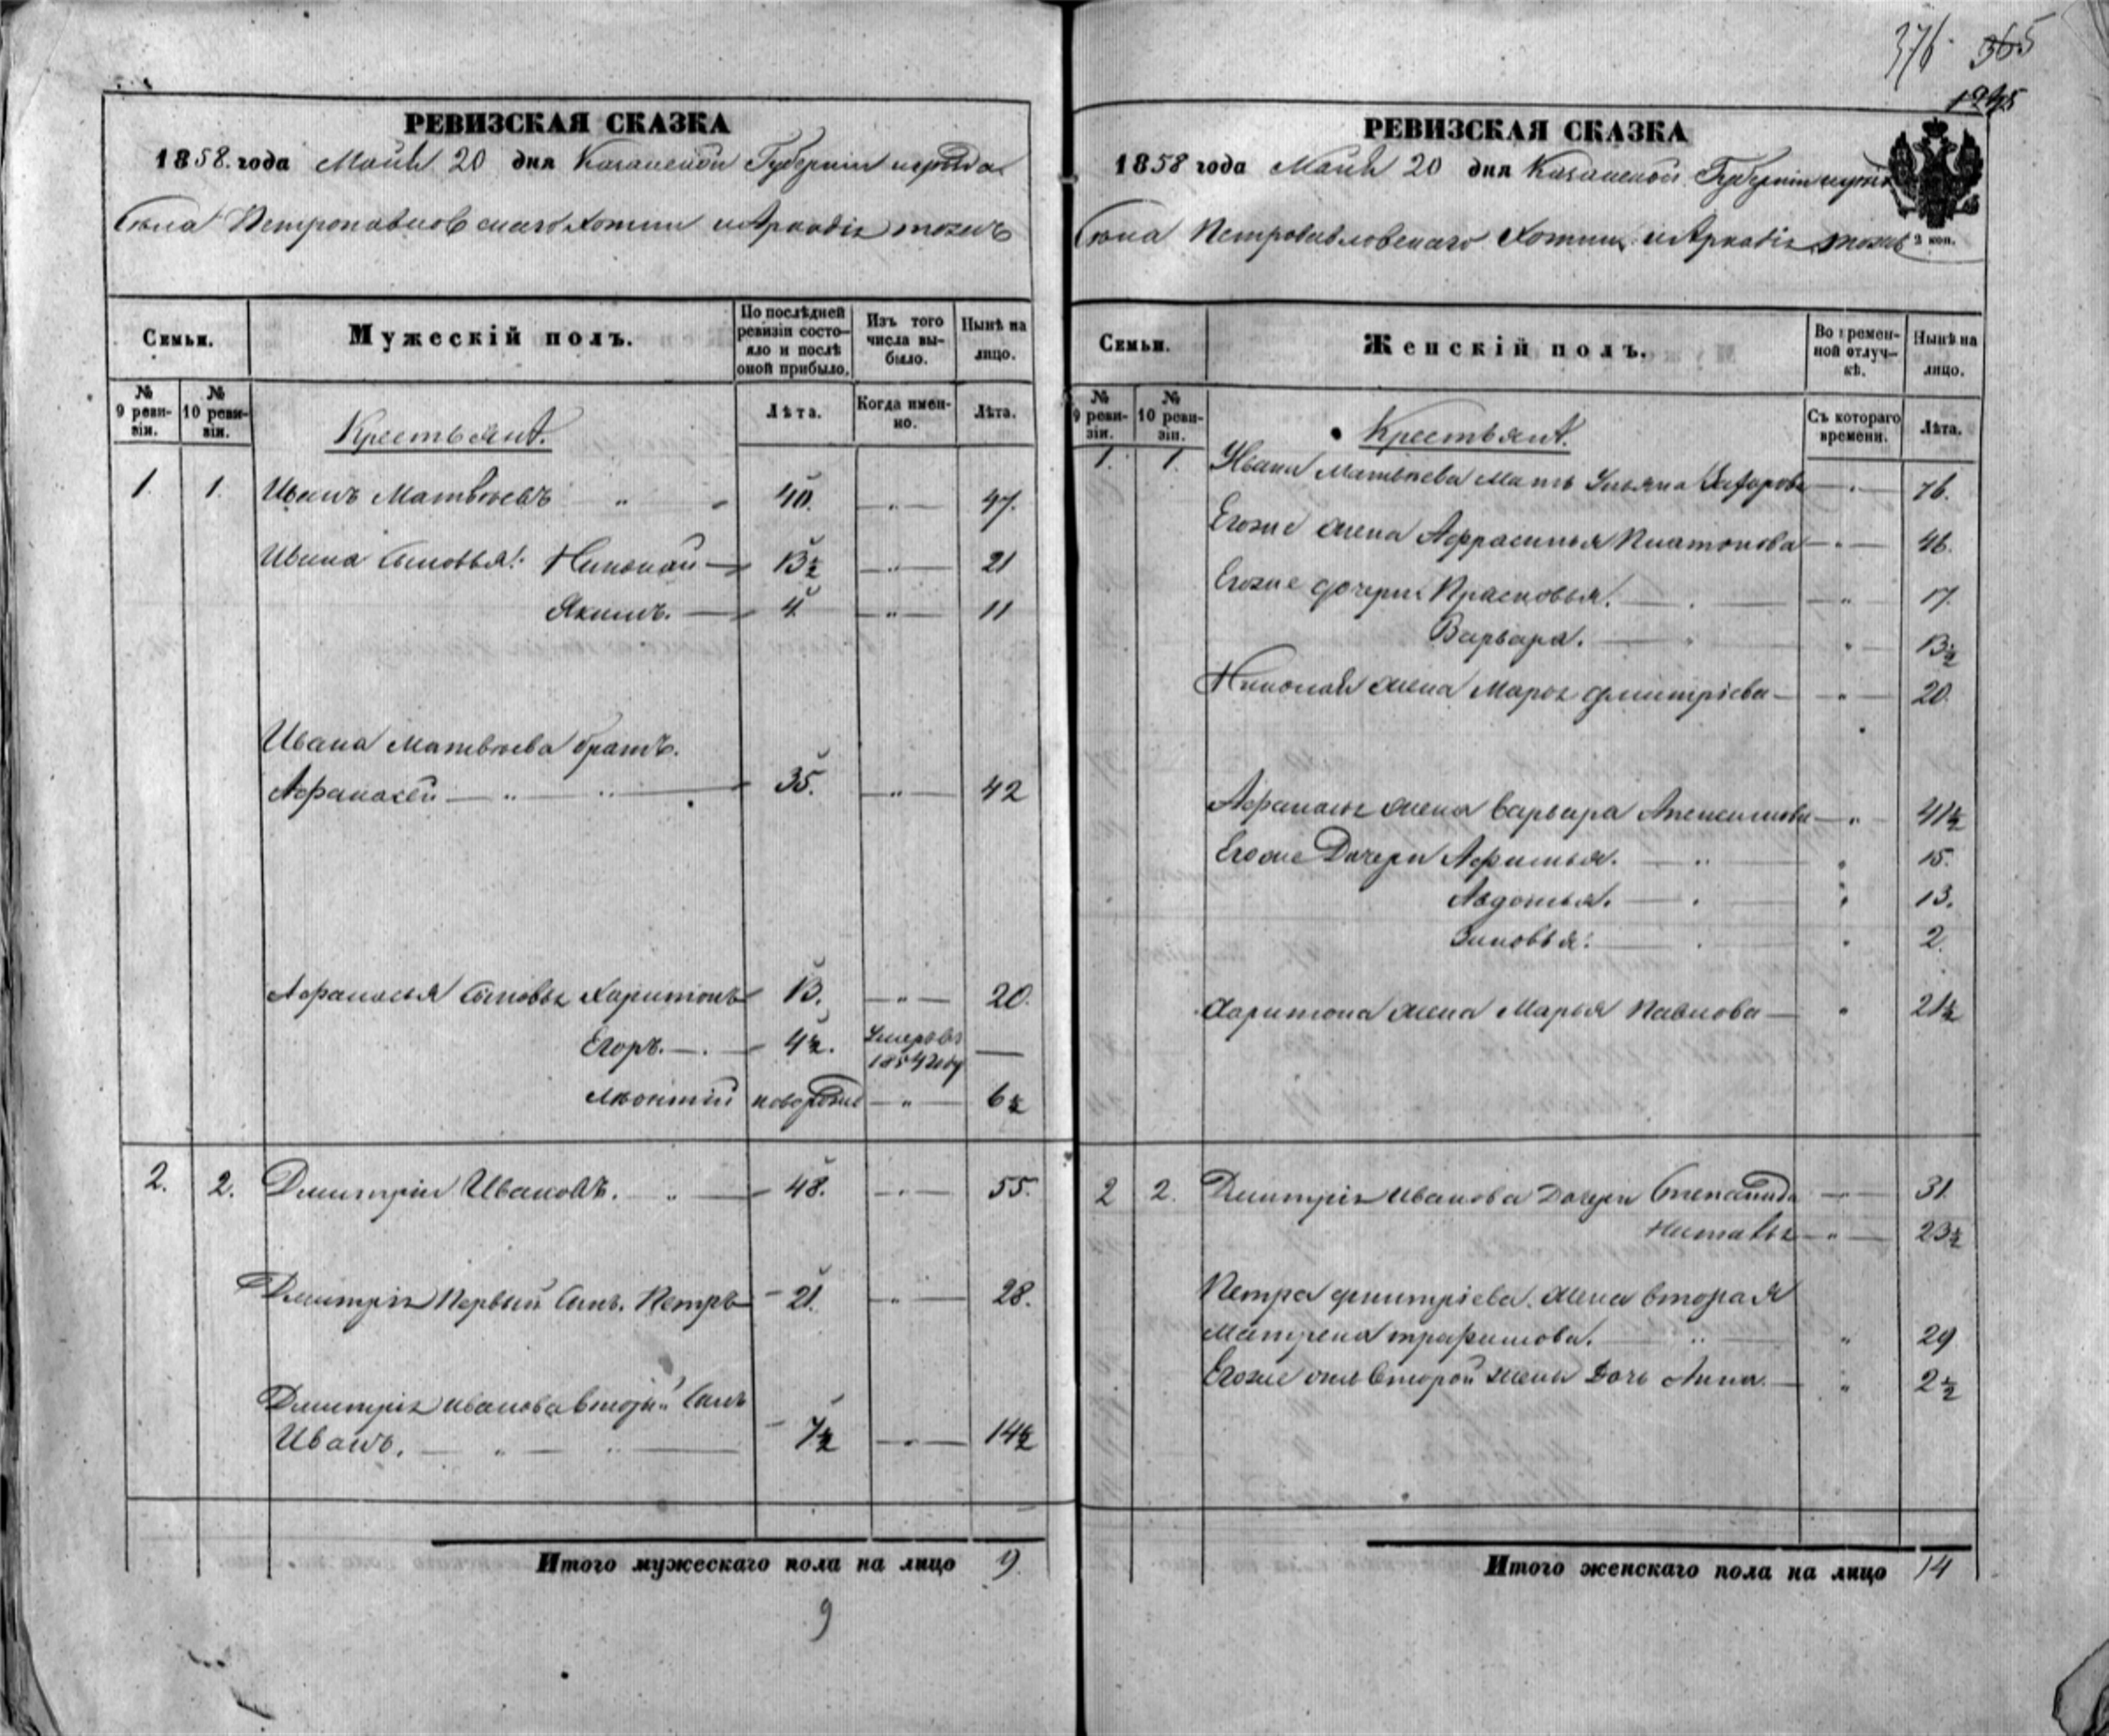 376. 365
РЕВИЗСКАЯ СКАЗКА
1858. года Маія 20 дня Казанской Губерніи
Села Петропавловскаго Хотни и Аркадія тожъ
Семьи.
Мужескій полъ.
По послѣдней ревизіи состо-
яло и послѣ
оной прибыло.
Изъ того
числа вы-
было.
Нынѣ на
лицо.
№
9 реви-
зіи.
№
10 реви-
зіи.
Лѣта.
Когда имен-
но.
Лѣта.
Крестьянѣ.
1. 1. Иванъ Матвѣевъ " 40. " 47.
Ивана Сыновья: Николай 13½ " 21
Якимъ. 4 " 11
Ивана Матвѣева братъ.
Афанасей " " 35. " 42
Афанасья Сыновья Харитонъ 13. " 20.
Егоръ. 4½. Умеръ въ
1854 году
Леонтий новорожде " 6½
2. 2. Дмитрій Ивановъ. " 48. " 55.
Дмитрія Первый Сынъ. Петръ 21. " 28.
Дмитрія Иванова вторый Сынъ
Иванъ. " " 7½ " 14½
Итого мужескаго пола на лицо 9.
9
РЕВИЗСКАЯ СКАЗКА
1858 года Маія 20 дня Казанской Губерніи
Села Петропавловскаго Хотни и Аркадія тожъ
3 коп.
Семьи.
Женскій полъ.
Во времен-
ной отлуч-
кѣ.
Нынѣ на
лицо.
№
9 реви-
зіи.
№
10 реви-
зіи.
Съ котораго
времени.
Лѣта.
Крестьянѣ.
1. 1. Ивана Матвѣева Мать Ульяна 76.
Егоже жена Афрасинья Платонова 46.
Егоже дочери Прасковья. " 17.
Варвара. " 13½
Николая жена Марья Дмитріева " 20.
Афанасья жена Варвара Алексимова " 41½
Егоже Дочери Афимья. " 15.
Авдотья. 13.
Зиновья. 2.
Харитона жена Марья Павлова " 21½
2 2. Дмитрія Иванова Дочери Степанида " 31.
Наталья " 23½
Петра Дмитріева. жена вторая
Матрена Трафимова. " " 29
Егоже отъ второй жены Дочь Анна. " 2½
Итого женскаго пола на лицо 14